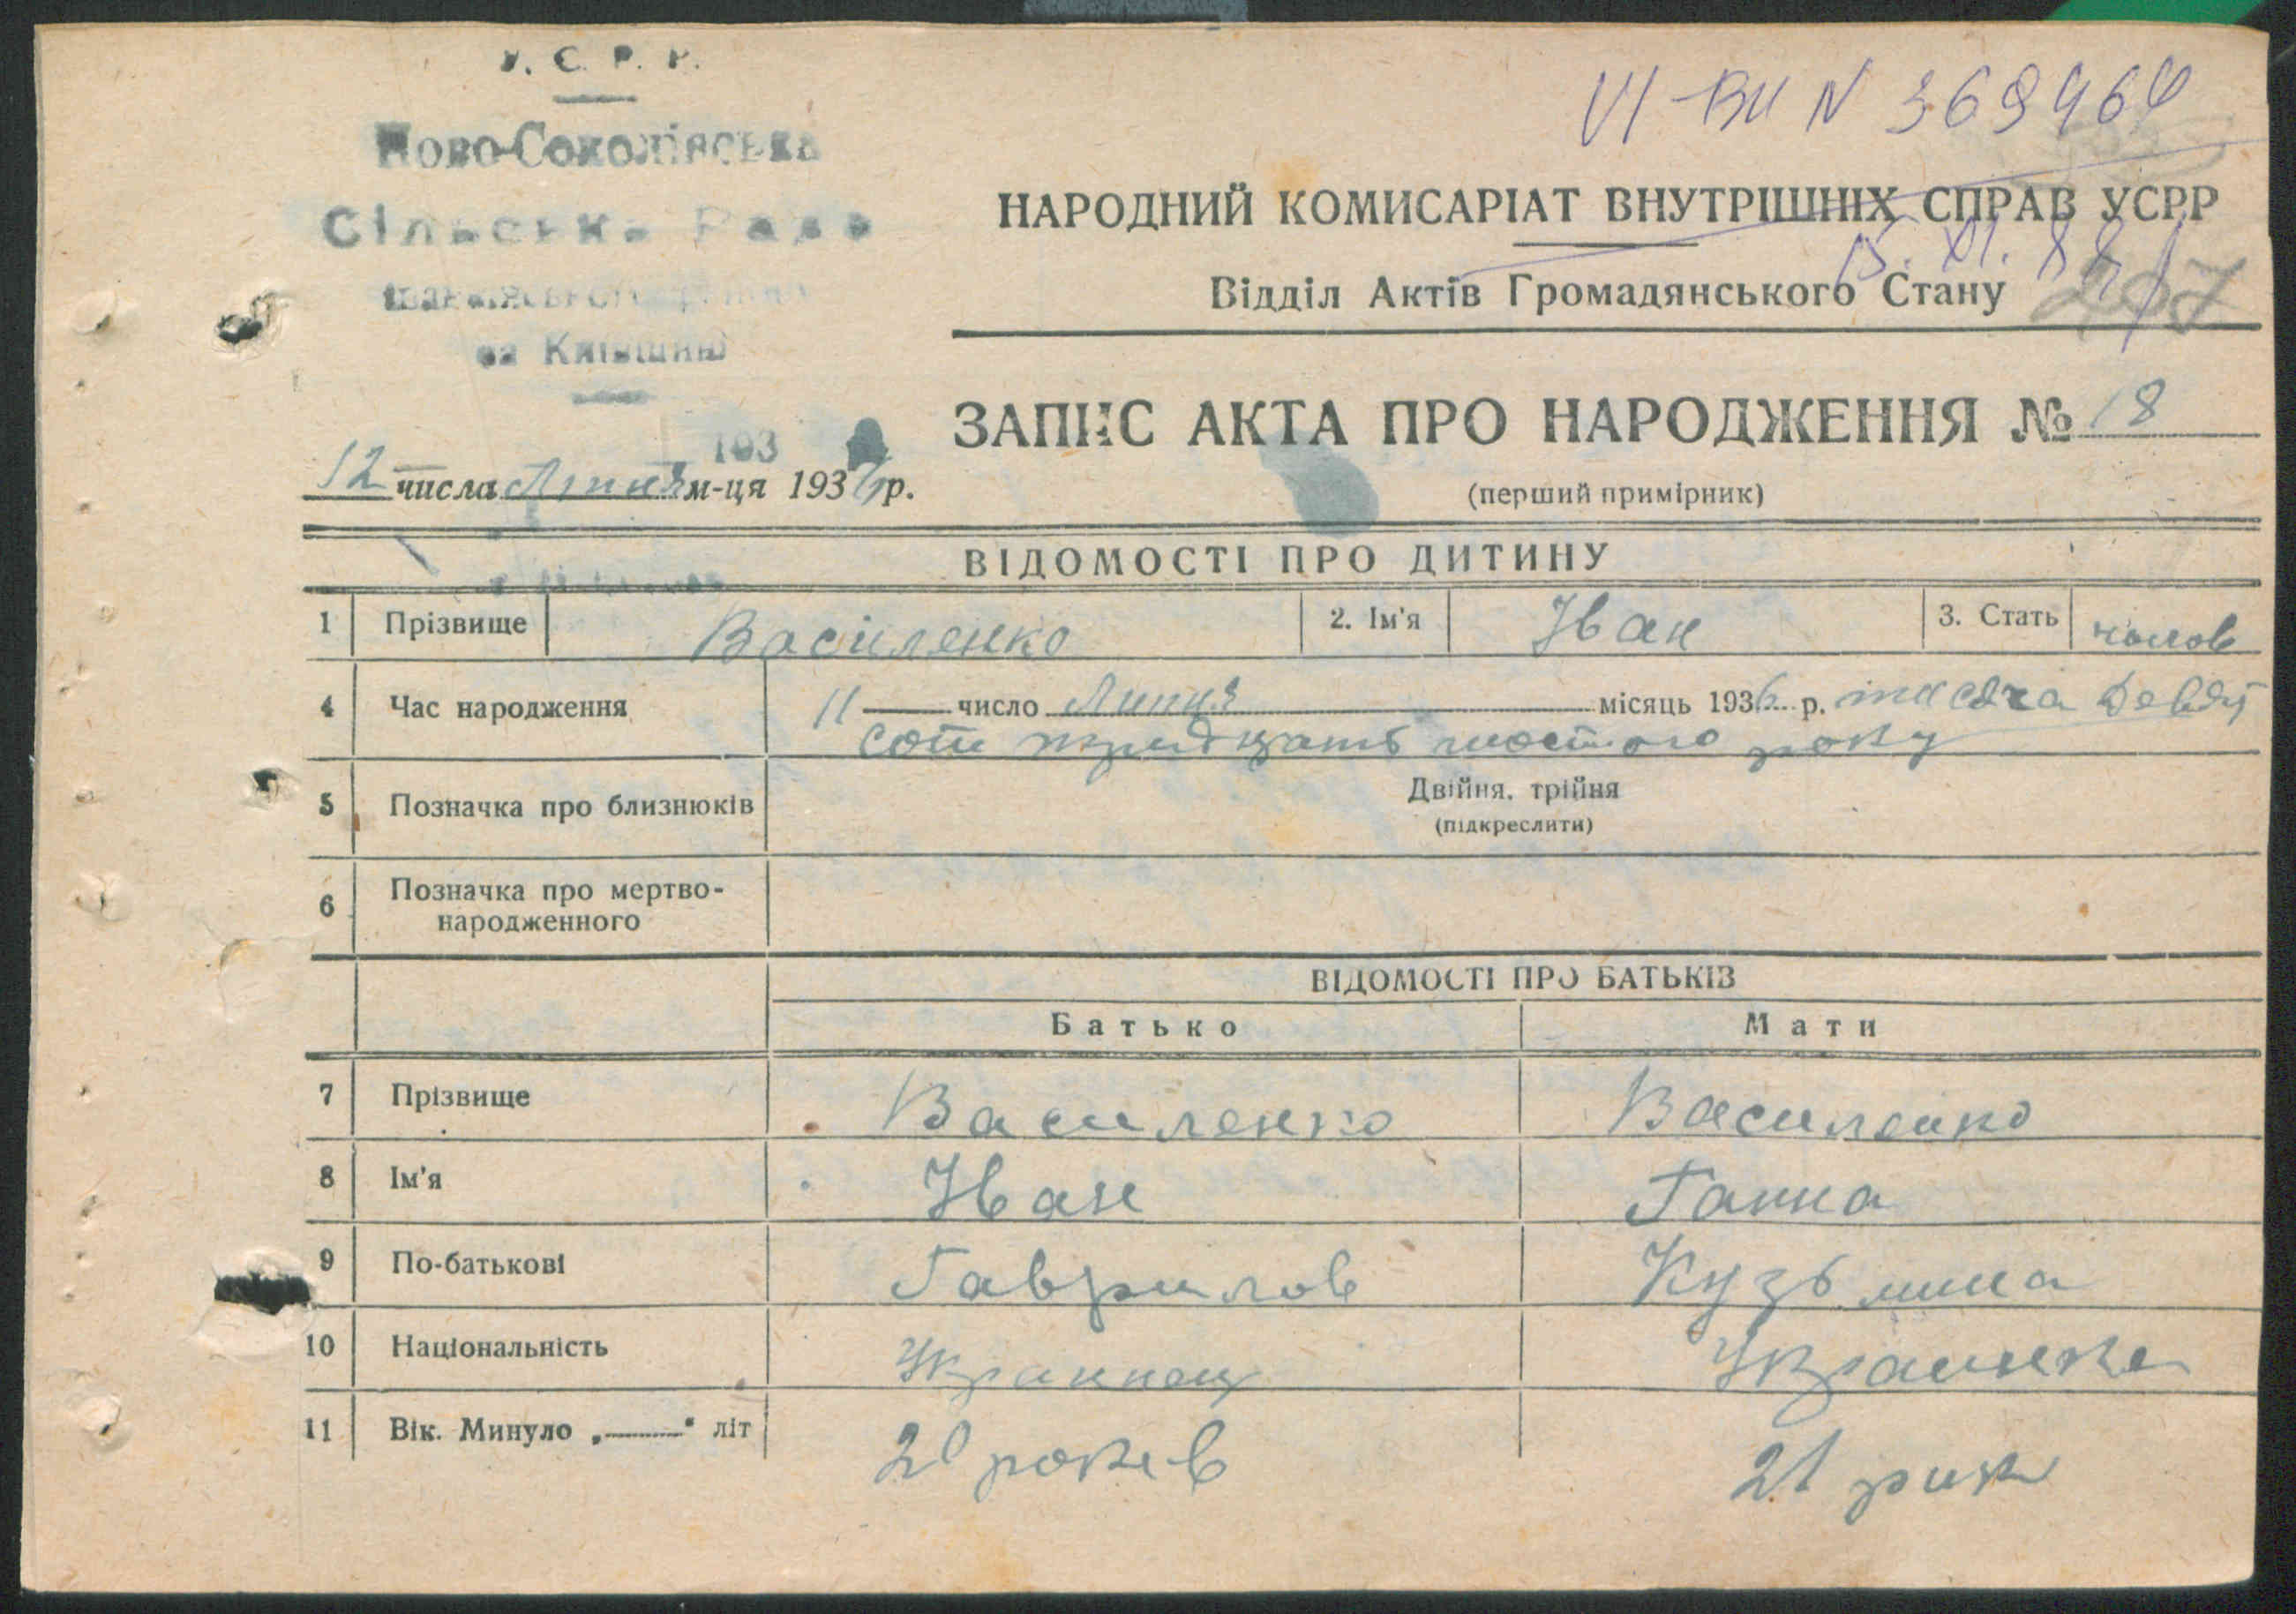 У. С. Р. Р.
Ново-Соколівська
Сільська Рада
на Київщині
193
VI-ВИ N 369464
НАРОДНИЙ КОМИСАРІАТ ВНУТРІШНІХ СПРАВ УСРР
15. XI. 88
Відділ Актів Громадянського Стану
ЗАПИС АКТА ПРО НАРОДЖЕННЯ № 18
12 числа Липня м-ця 1936 р.
(перший примірник)
ВІДОМОСТІ ПРО ДИТИНУ
1 Прізвище Василенко 2. Ім'я Іван 3. Стать чолов
4 Час народження 11 число Липня місяць 1936 р. тисяча девят
сот тридцять шостого року
5 Позначка про близнюків Двійня, трійня
(підкреслити)
6 Позначка про мертво-
народженного
ВІДОМОСТІ ПРО БАТЬКІВ
Батько Мати
7 Прізвище Василенко Василенко
8 Ім'я Іван Ганна
9 По-батькові Гаврилов Кузьмина
10 Національність Украинец Украинка
11 Вік. Минуло „ “ літ 20 рокив 21 рик